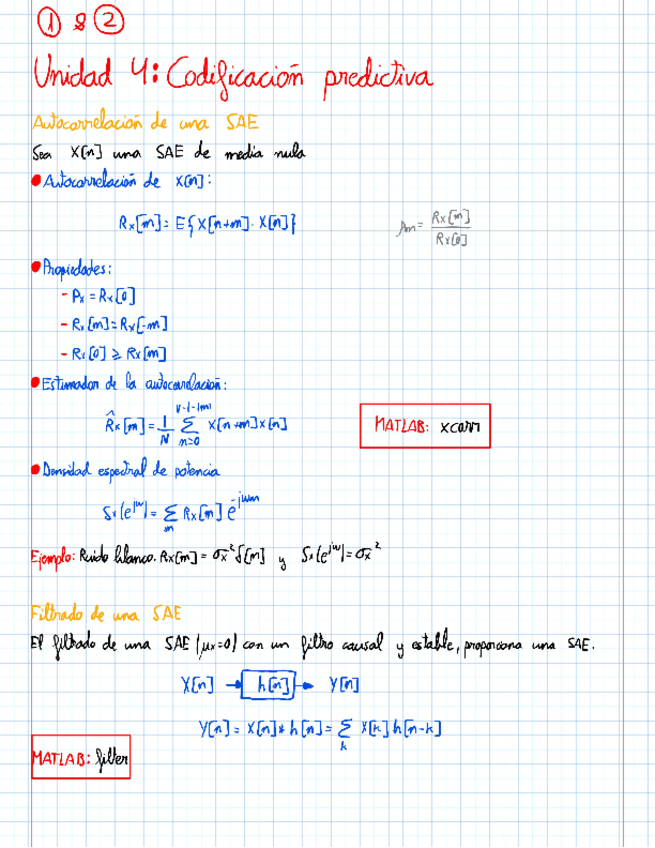 ① & ②
Unidad 4: Codificación predictiva
Autocorrelación de una SAE
Sea X[n] una SAE de media nula
● Autocorrelación de X[n]:
Rx[m] = E{X[n+m]·X[n]}
ρm = Rx[m] / Rx[0]
● Propiedades:
- Px = Rx[0]
- Rx[m] = Rx[-m]
- Rx[0] ≥ Rx[m]
● Estimador de la autocorrelación:
R̂x[m] = 1/N Σ_{n=0}^{N-1-|m|} x[n+m]x[n]
MATLAB: xcorr
● Densidad espectral de potencia
Sx(e^{jω}) = Σ_m Rx[m] e^{-jωm}
Ejemplo: Ruido blanco. Rx[m] = σx² δ[m] y Sx(e^{jω}) = σx²
Filtrado de una SAE
El filtrado de una SAE (μx=0) con un filtro causal y estable, proporciona una SAE.
X[n] → h[n] → Y[n]
Y[n] = X[n] * h[n] = Σ_k X[k] h[n-k]
MATLAB: filter